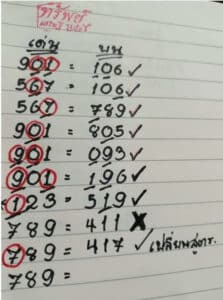 เด่น บน
901 = 106 ✓
567 = 106 ✓
567 = 789 ✓
901 = 805 ✓
901 = 093 ✓
901 = 196 ✓
123 = 519 ✓
789 = 411 X
789 = 417 ✓ เปลี่ยนสูตร.
789 =